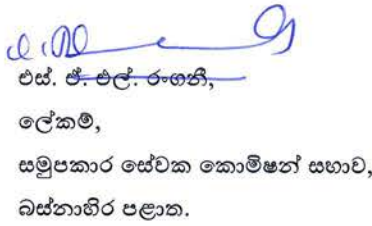 එස්. ඒ. එල්. රංගනී,
ලේකම්,
සමුපකාර සේවක කොමිෂන් සභාව,
බස්නාහිර පළාත.